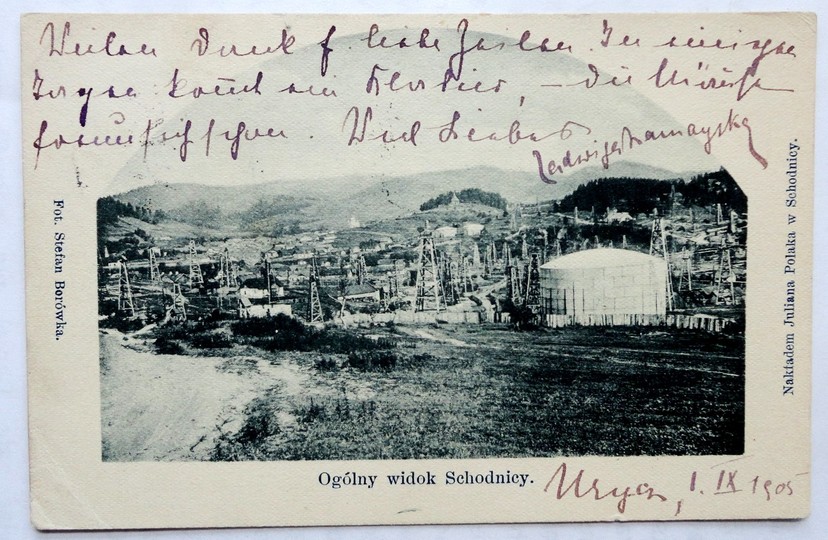 Vielen Dank f. liebe Zeilen. In einigen
Tagen kommt ein
freuen sich schon. Viel Liebes
Jadwiga
Fot. Stefan Borówka.
Nakładem Juliana Polaka w Schodnicy.
Ogólny widok Schodnicy.
Urycz, 1. IX 1905